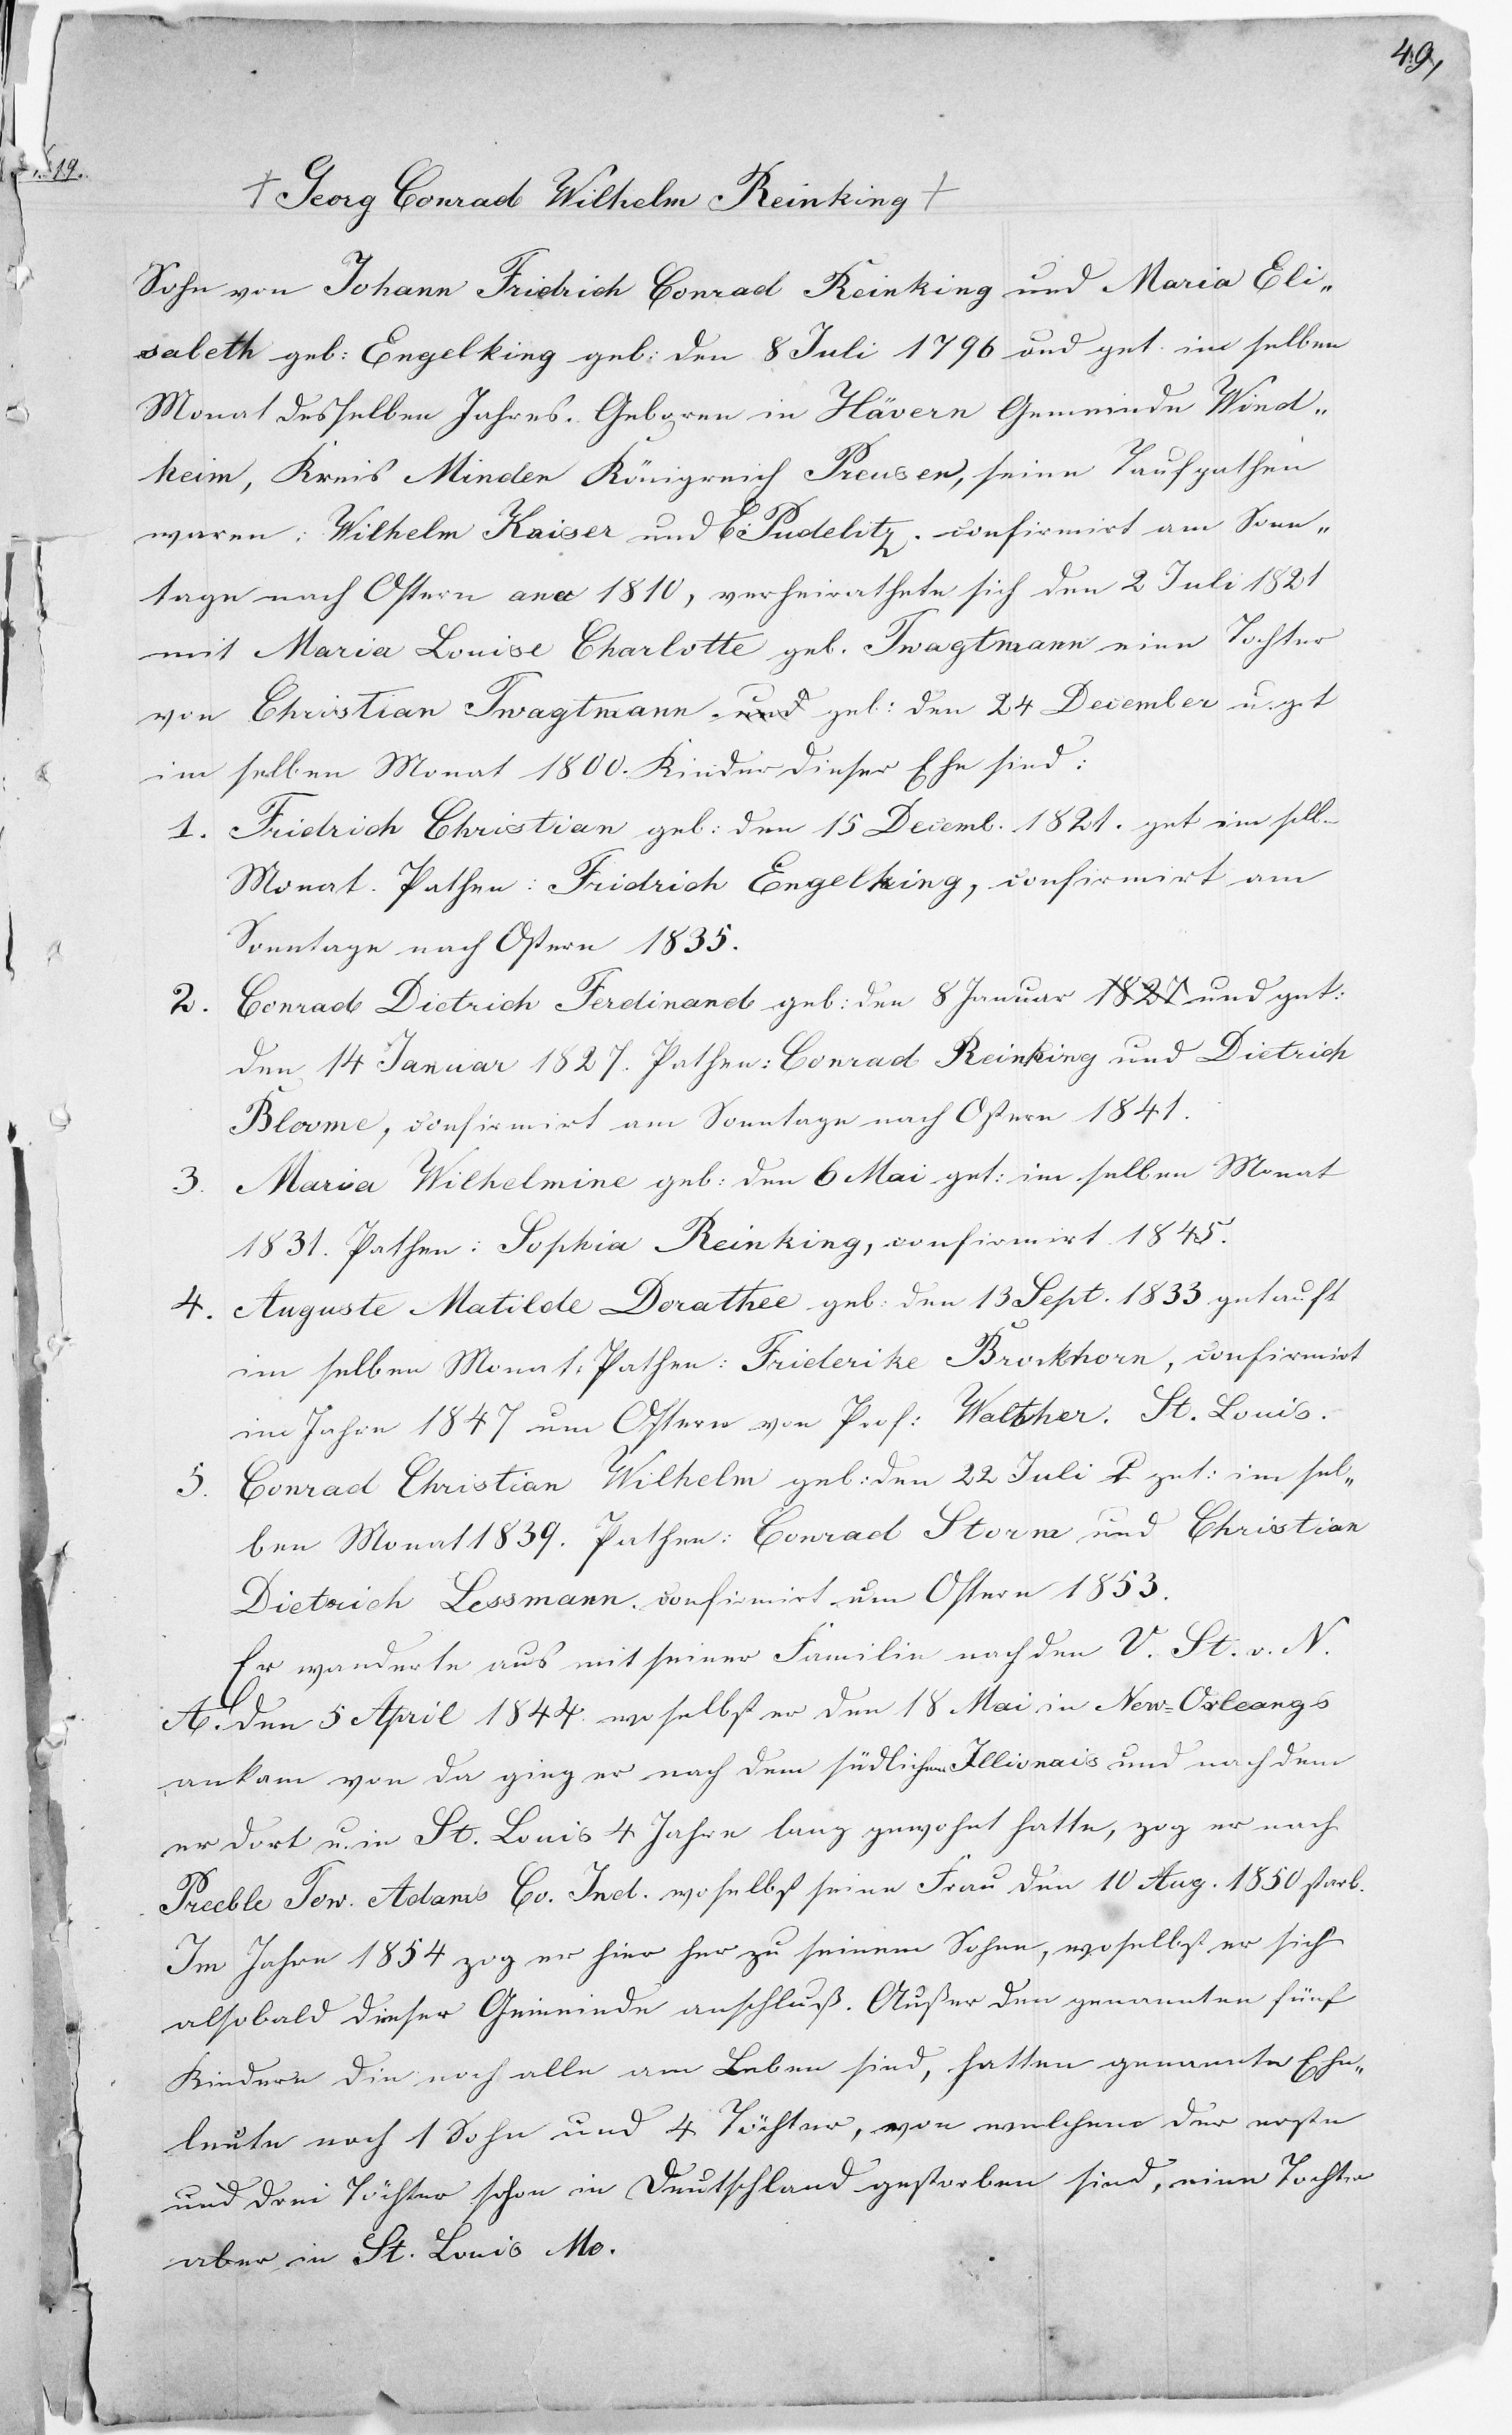 49,
19.
† Georg Conrad Wilhelm Reinking †
Sohn von Johann Fridrich Conrad Reinking und Maria Eli„
sabeth geb: Engelking geb: den 8 Juli 1796 und get. im selben
Monat desselben Jahres. Geboren in Hävern Gemeinde Wind„
heim, Kreis Minden Königreich Preusen, seine Taufpathen
waren: Wilhelm Kaiser und E. Pudelitz. confirmirt am Sonn„
tage nach Ostern 1810, verheirathete sich den 2 Juli 1821
mit Maria Louise Charlotte geb. Twagtmann eine Tochter
von Christian Twagtmann und geb: den 24 December u. get
im selben Monat 1800. Kinder dieser Ehe sind:
1. Fridrich Christian geb: den 15 Decemb. 1821. get im selb.
Monat. Pathen: Fridrich Engelking, confirmirt am
Sonntage nach Ostern 1835.
2. Conrad Dietrich Ferdinand geb: den 8 Januar 1827 und get:
den 14 Januar 1827. Pathen: Conrad Reinking und Dietrich
Blovme, confirmirt am Sonntage nach Ostern 1841.
3. Maria Wilhelmine geb: den 6 Mai get: im selben Monat
1831. Pathen: Sophia Reinking, confirmirt 1845.
4. Auguste Matilde Dorathee geb: den 13 Sept. 1833 getauft
im selben Monat. Pathen: Friderike Brockhorn, confirmirt
im Jahre 1847 um Ostern von Prof: Walther. St. Louis.
5. Conrad Christian Wilhelm geb: den 22 Juli get: im sel„
ben Monat 1839. Pathen: Conrad Storm und Christian
Dietrich Lessmann. confirmirt um Ostern 1853.
Er wanderte aus mit seiner Familie nach den V. St. v. N.
A. den 5 April 1844. woselbst er den 18 Mai in New-Orleangs
ankam von da ging er nach dem südlichen Illionais und nach dem
er dort u. in St. Louis 4 Jahre lang gewohnt hatte, zog er nach
Preeble Tow. Adams Co. Ind. woselbst seine Frau den 10 Aug. 1850 starb.
Im Jahre 1854 zog er hier her zu seinem Sohne, woselbst er sich
alsobald dieser Gemeinde anschluß. Außer den genannten fünf
Kindern die noch alle am Leben sind, hatten genannte Ehe„
leute noch 1 Sohn und 4 Töchter, von welchem der erste
und drei Töchter schon in Deutschland gestorben sind, eine Tochter
aber in St. Louis Mo.